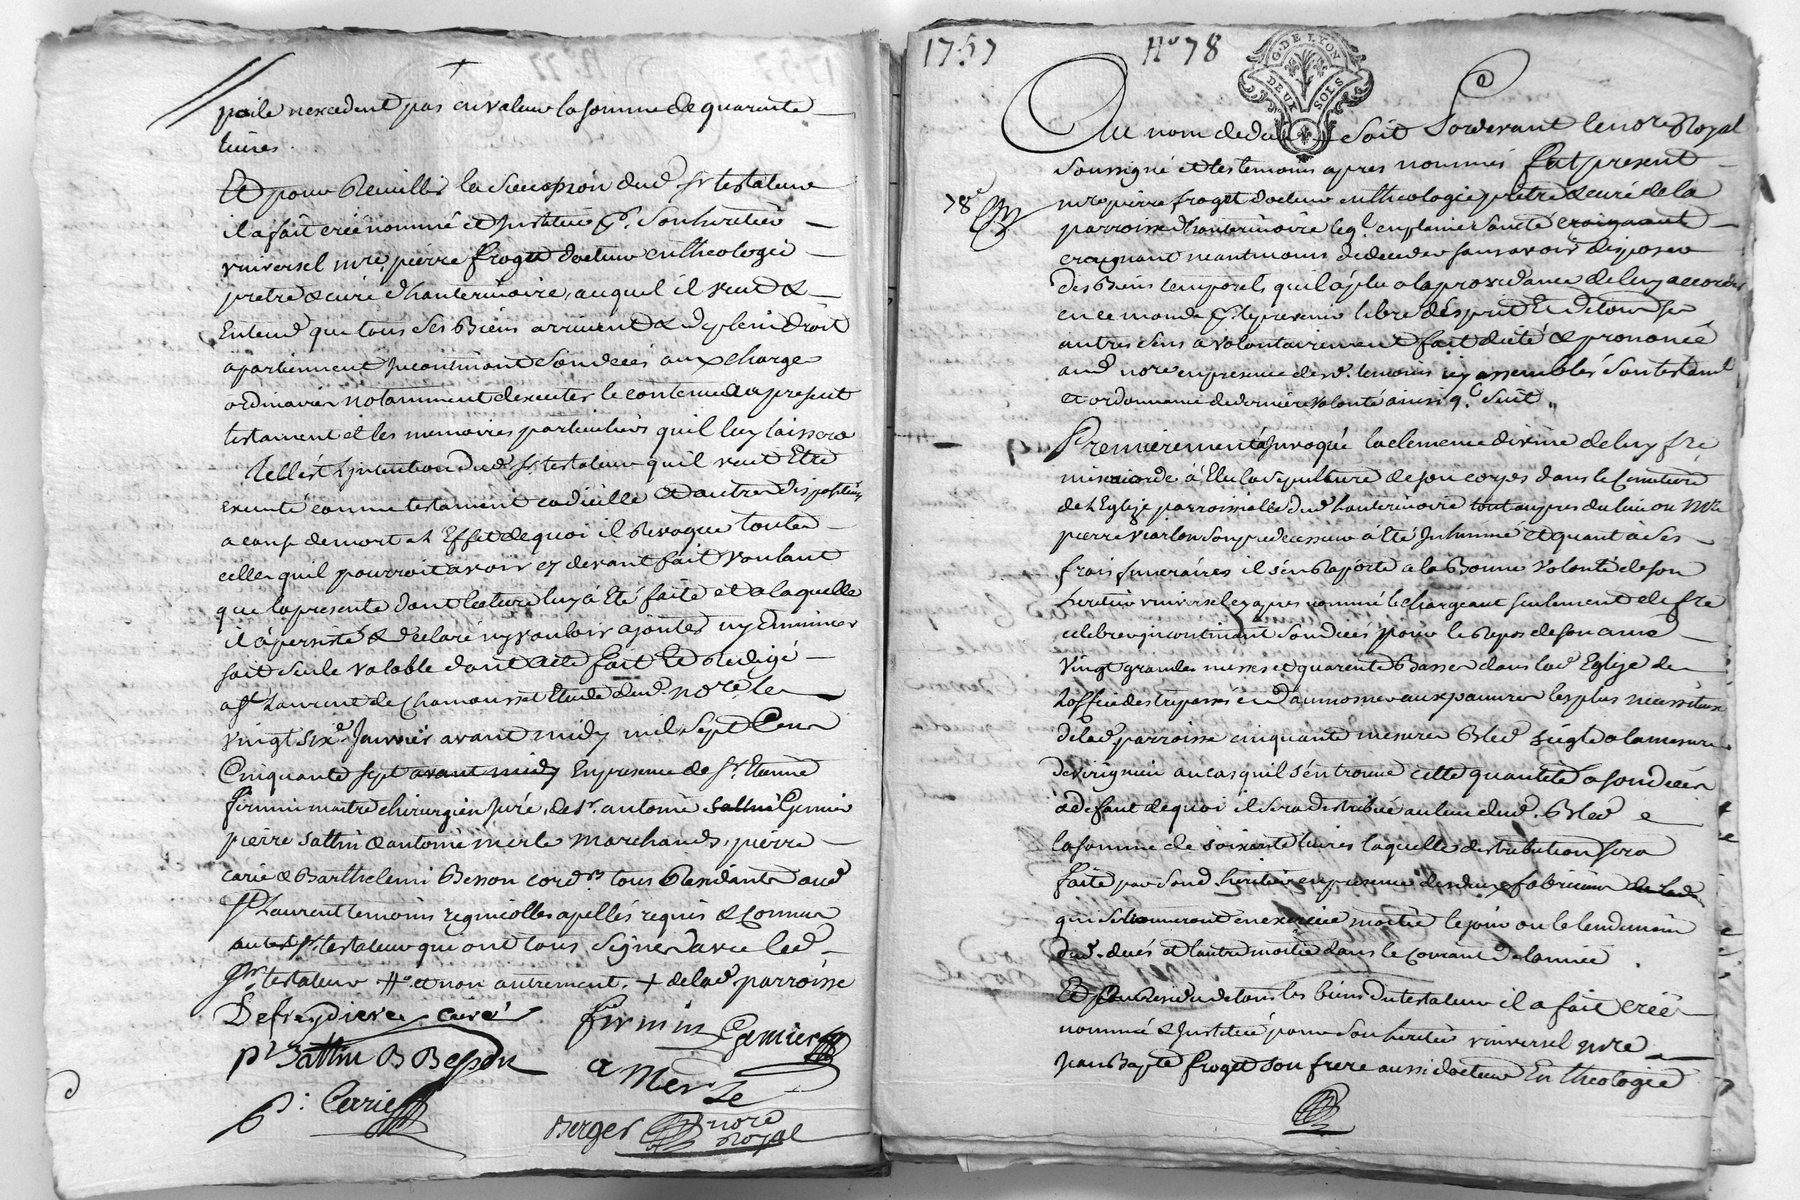 poile nexcedent pas en valeur la somme de quarente
livres.
Et pour Recuillir la Succession dud. sr testateur
il a fait créé nommé et Institué pr. Son heritier
vniversel mre. pierre froget docteur en theologie
pretre & curé d'hauterivoire, auquel il veut &
Entend que tous ses Biens arrivent & de plein droit
apartiennent Incontinant son deces aux charges
ordinaires notamment dexecuter le contenu au present
testament et les memoires particuliers quil luy laissera
Telle est L'intention dud. sr testateur quil veut Etre
executé comme testament codicille et autres dispositions
a cause de mort a L'Effet de quoi il Revoque toutes
celles quil pourroit avoir cy devant fait voulant
que la presente dont lecture luy à Eté faite et a laquelle
il a persisté & declaré ny vouloir ajouter ny diminuer
soit seule valable dont acte fait Et Redigé
a St Laurent de Chamousset Etude dud. nore. le
vingt six Janvier avant midy mil Sept Cent
Cinquante sept avant midy En presence de Sr. Etienne
firmin maitre chirurgien juré, de Sr. antoine sattin Gemier
pierre sattin & antoine merle marchands, pierre
carié & Barthelemi Besson cord. tous Residants aud
St Laurent temoins regnicolles apellés requis & Connus
aud. Sr. testateur qui ont tous Signé avec led.
Sr. testateur et non autrement. + de lad. parroisse
Defreydiere curé firmin Gemier
pr Sattin B Besson a Merle
p: Carié Berger nore Royal
1757 No 78
G. DE LYON
DEUX SOLS
Au nom de dieu Soit Pardevant le nore Royal
Soussigné et les temoins apres nommés fut present
mre pierre froget docteur en theologie pretre & curé de la
78e
parroisse d'hauterivoire leql. en pleine Santé craignant
craignant neantmoins de deceder sans avoir disposer
des Biens temporels quil à plu a la providence de luy accorder
en ce monde pr. le present libre d'esprit Et de tous ses
autres sens a volontairement fait dicté & prononcé
aud nore en presence desd. temoins icy assemblés Son testamt
et ordonnance de derniere volonté ainsi q. Suit
Premierement à Invoqué la clemence divine de luy fre
misericorde à Elu la Sepulture de son corps dans le Cimetiere
de l'Eglise parroissialle dud. hauterivoire tout aupres du lieu ou Mre
pierre Viarlon Son predecesseur à Eté Inhumé et quant à Ses
frais funeraires il s'en Rapporte a la Bonne volonté de son
heritier vniversel cy apres nommé le chargeant seulement de fre
celebrer incontinant Son deces pour le Repos de son ame
vingt grandes messes et quarente Basses dans lad Eglise de
L'office des trepassés et d'aumosner aux pauvres les plus necessiteux
de lad. parroisse cinquante mesures Bled seigle a la mesure
de virignieu au cas quil s'en trouve cette quantité a son deces
à defaut de quoi il sera distribué au lieu dud. Bled
la somme de soixante livres laquelle distribution sera
faite par Sond. heritier en presence des deux fabriciens de lad
qui Se trouveront en exercice moitie le jour ou le lendemain
dud. deces et l'autre moitie dans le Courant de l'année
Et Au Residu de tous les biens du testateur il a fait créé
nommé & Institué pour Son heritier vniversel mre
Jean Bapte froget Son frere aussi docteur En theologie